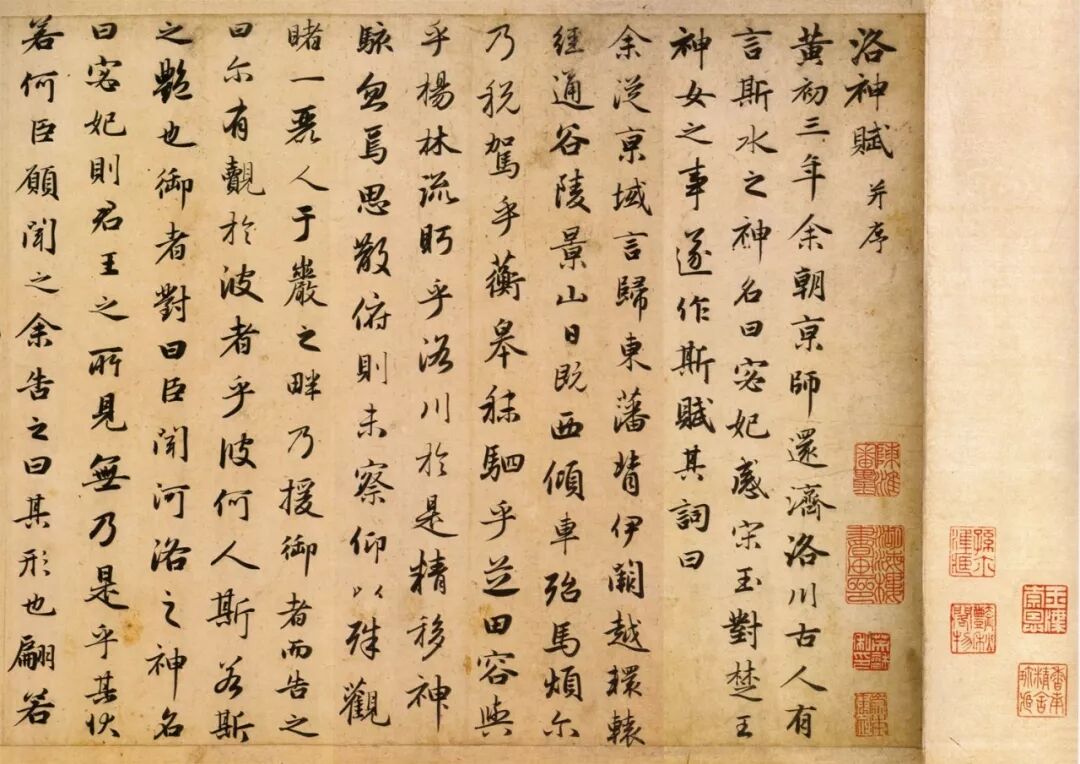 洛神賦 并序
黄初三年余朝京師還濟洛川古人有
言斯水之神名曰宓妃感宋玉對楚王
神女之事遂作斯賦其詞曰
余從京域言歸東藩背伊闕越轘轅
經通谷陵景山日既西傾車殆馬煩尔
乃稅駕乎蘅皋秣駟乎芝田容與
乎楊林流眄乎洛川於是精移神
駭忽焉思散俯則未察仰以殊觀
睹一麗人于巖之畔乃援御者而告之
曰尔有覿於彼者乎彼何人斯若斯
之艷也御者對曰臣聞河洛之神名
曰宓妃則君王之所見無乃是乎其状
若何臣願聞之余告之曰其形也翩若